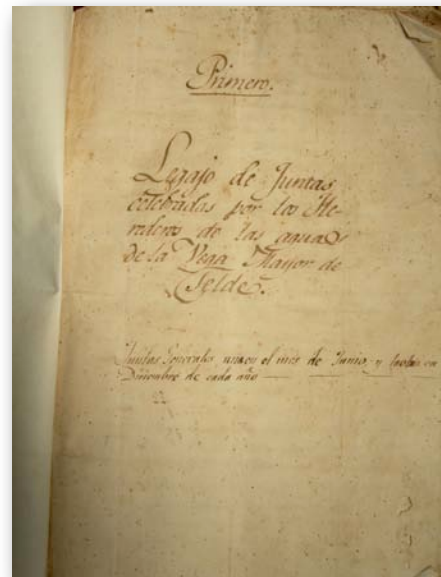 Primero.
Legajo de Juntas
celebradas por los He-
rederos de las aguas
de la Vega Mayor de
Telde.
Juntas Generales unas en el mes de Junio, y las otras en
Diciembre de cada año